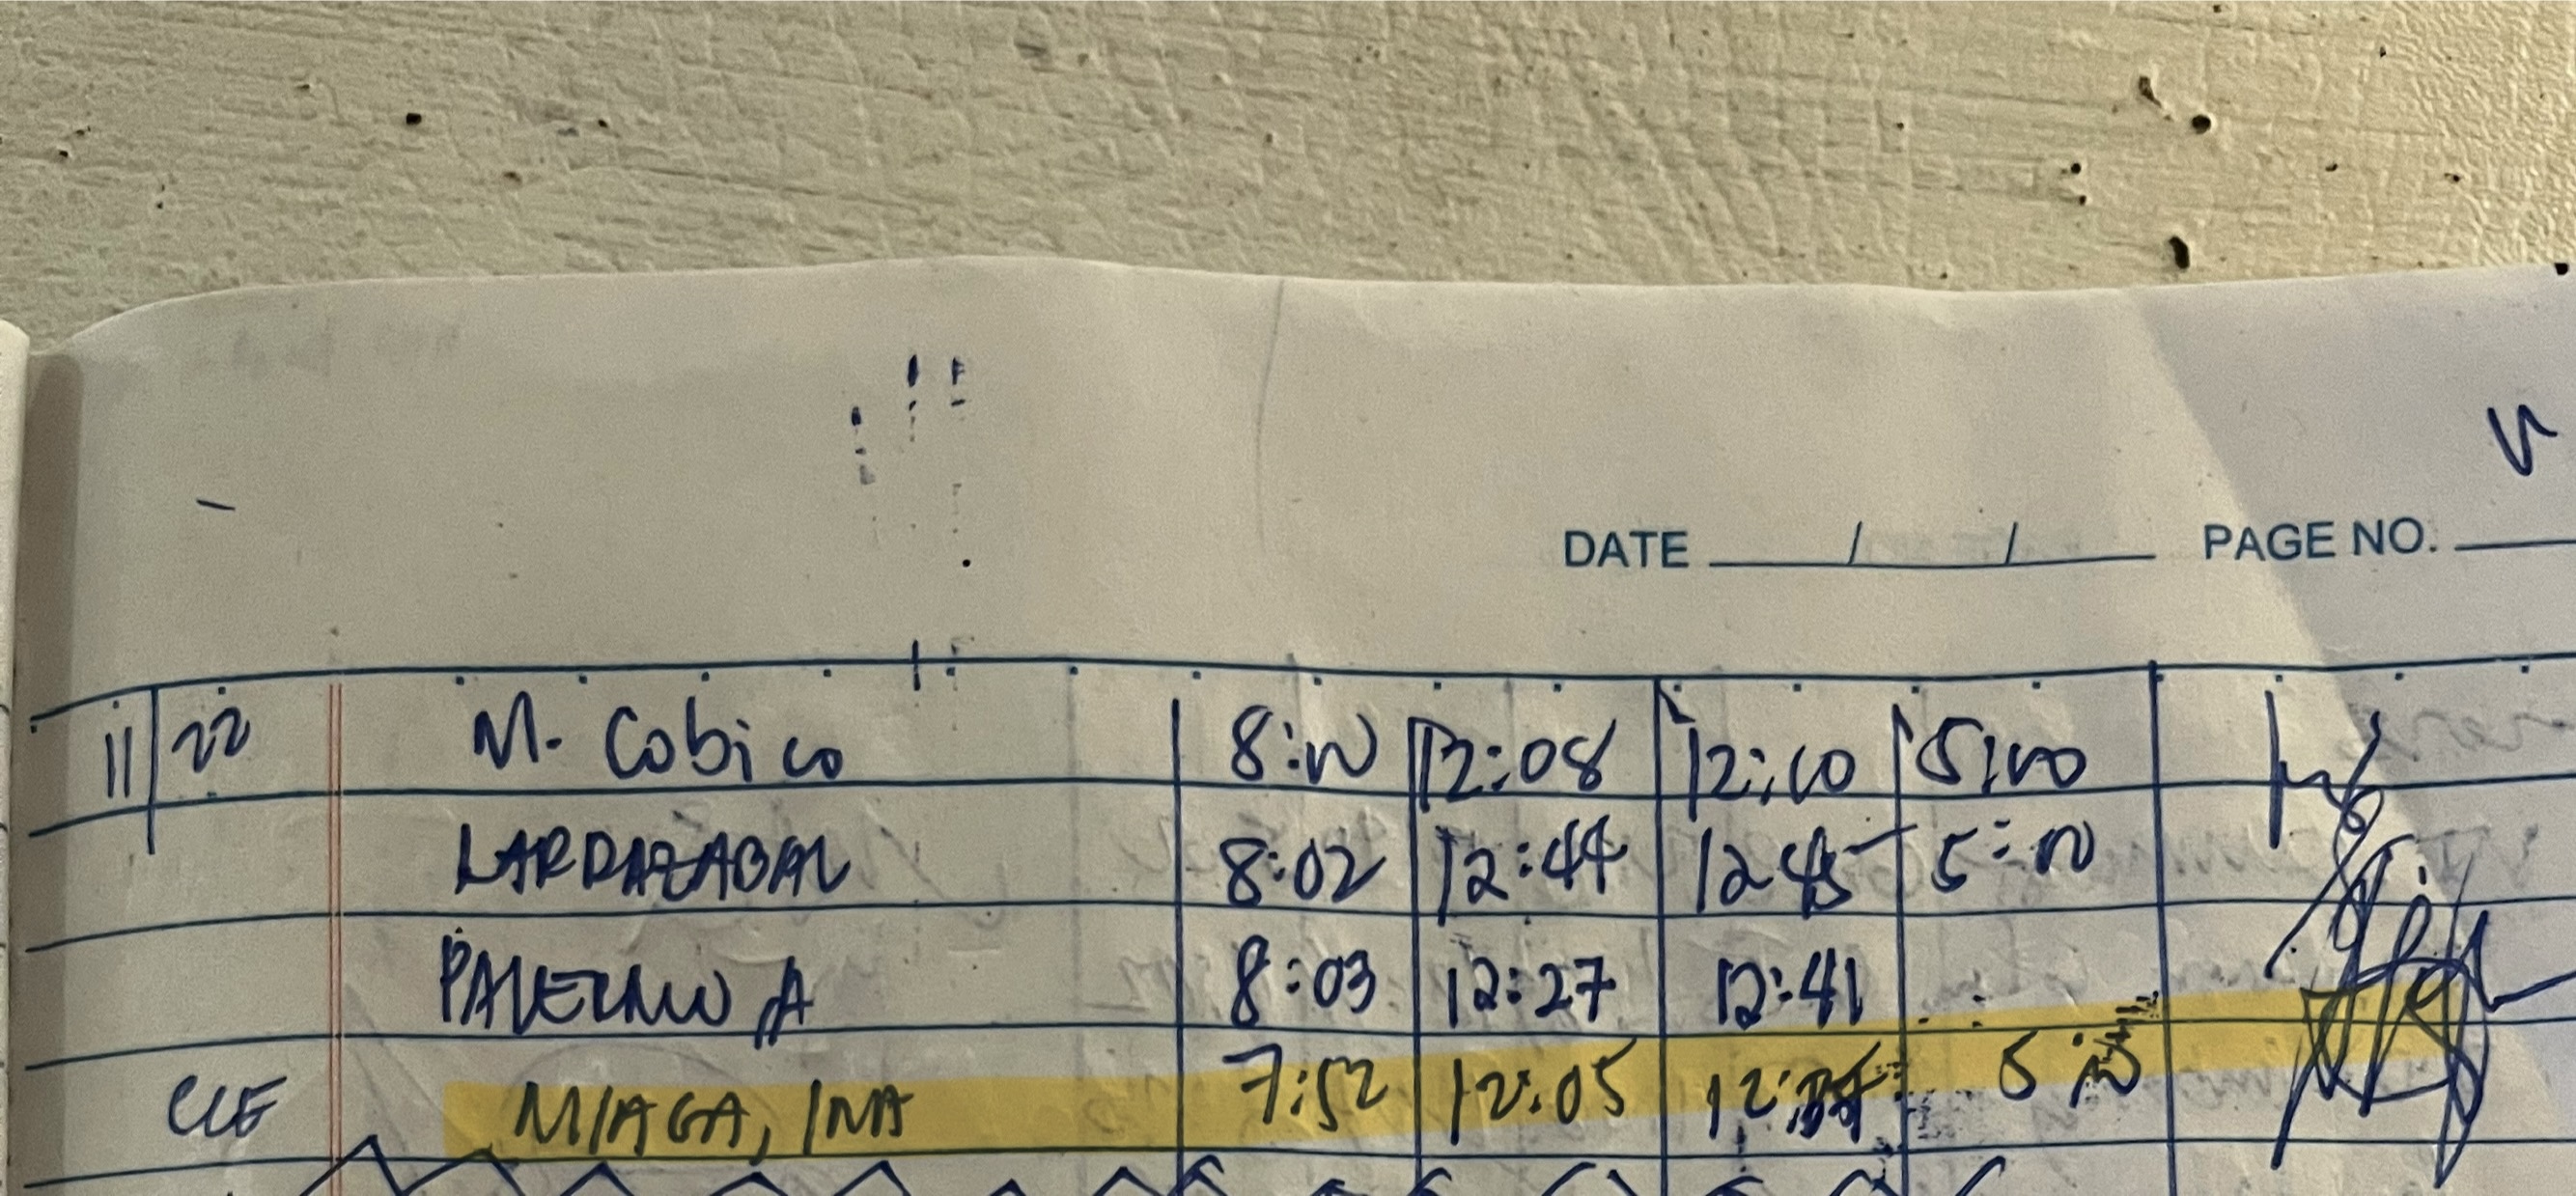 DATE / / PAGE NO.
11 22 M. Cobico 8:00 12:08 12:10 5:00
LARRAZABAL 8:02 12:44 12 45 5:00
A 8:03 12:27 12:41
CLE MIAGA, INA 7:52 12:05 5